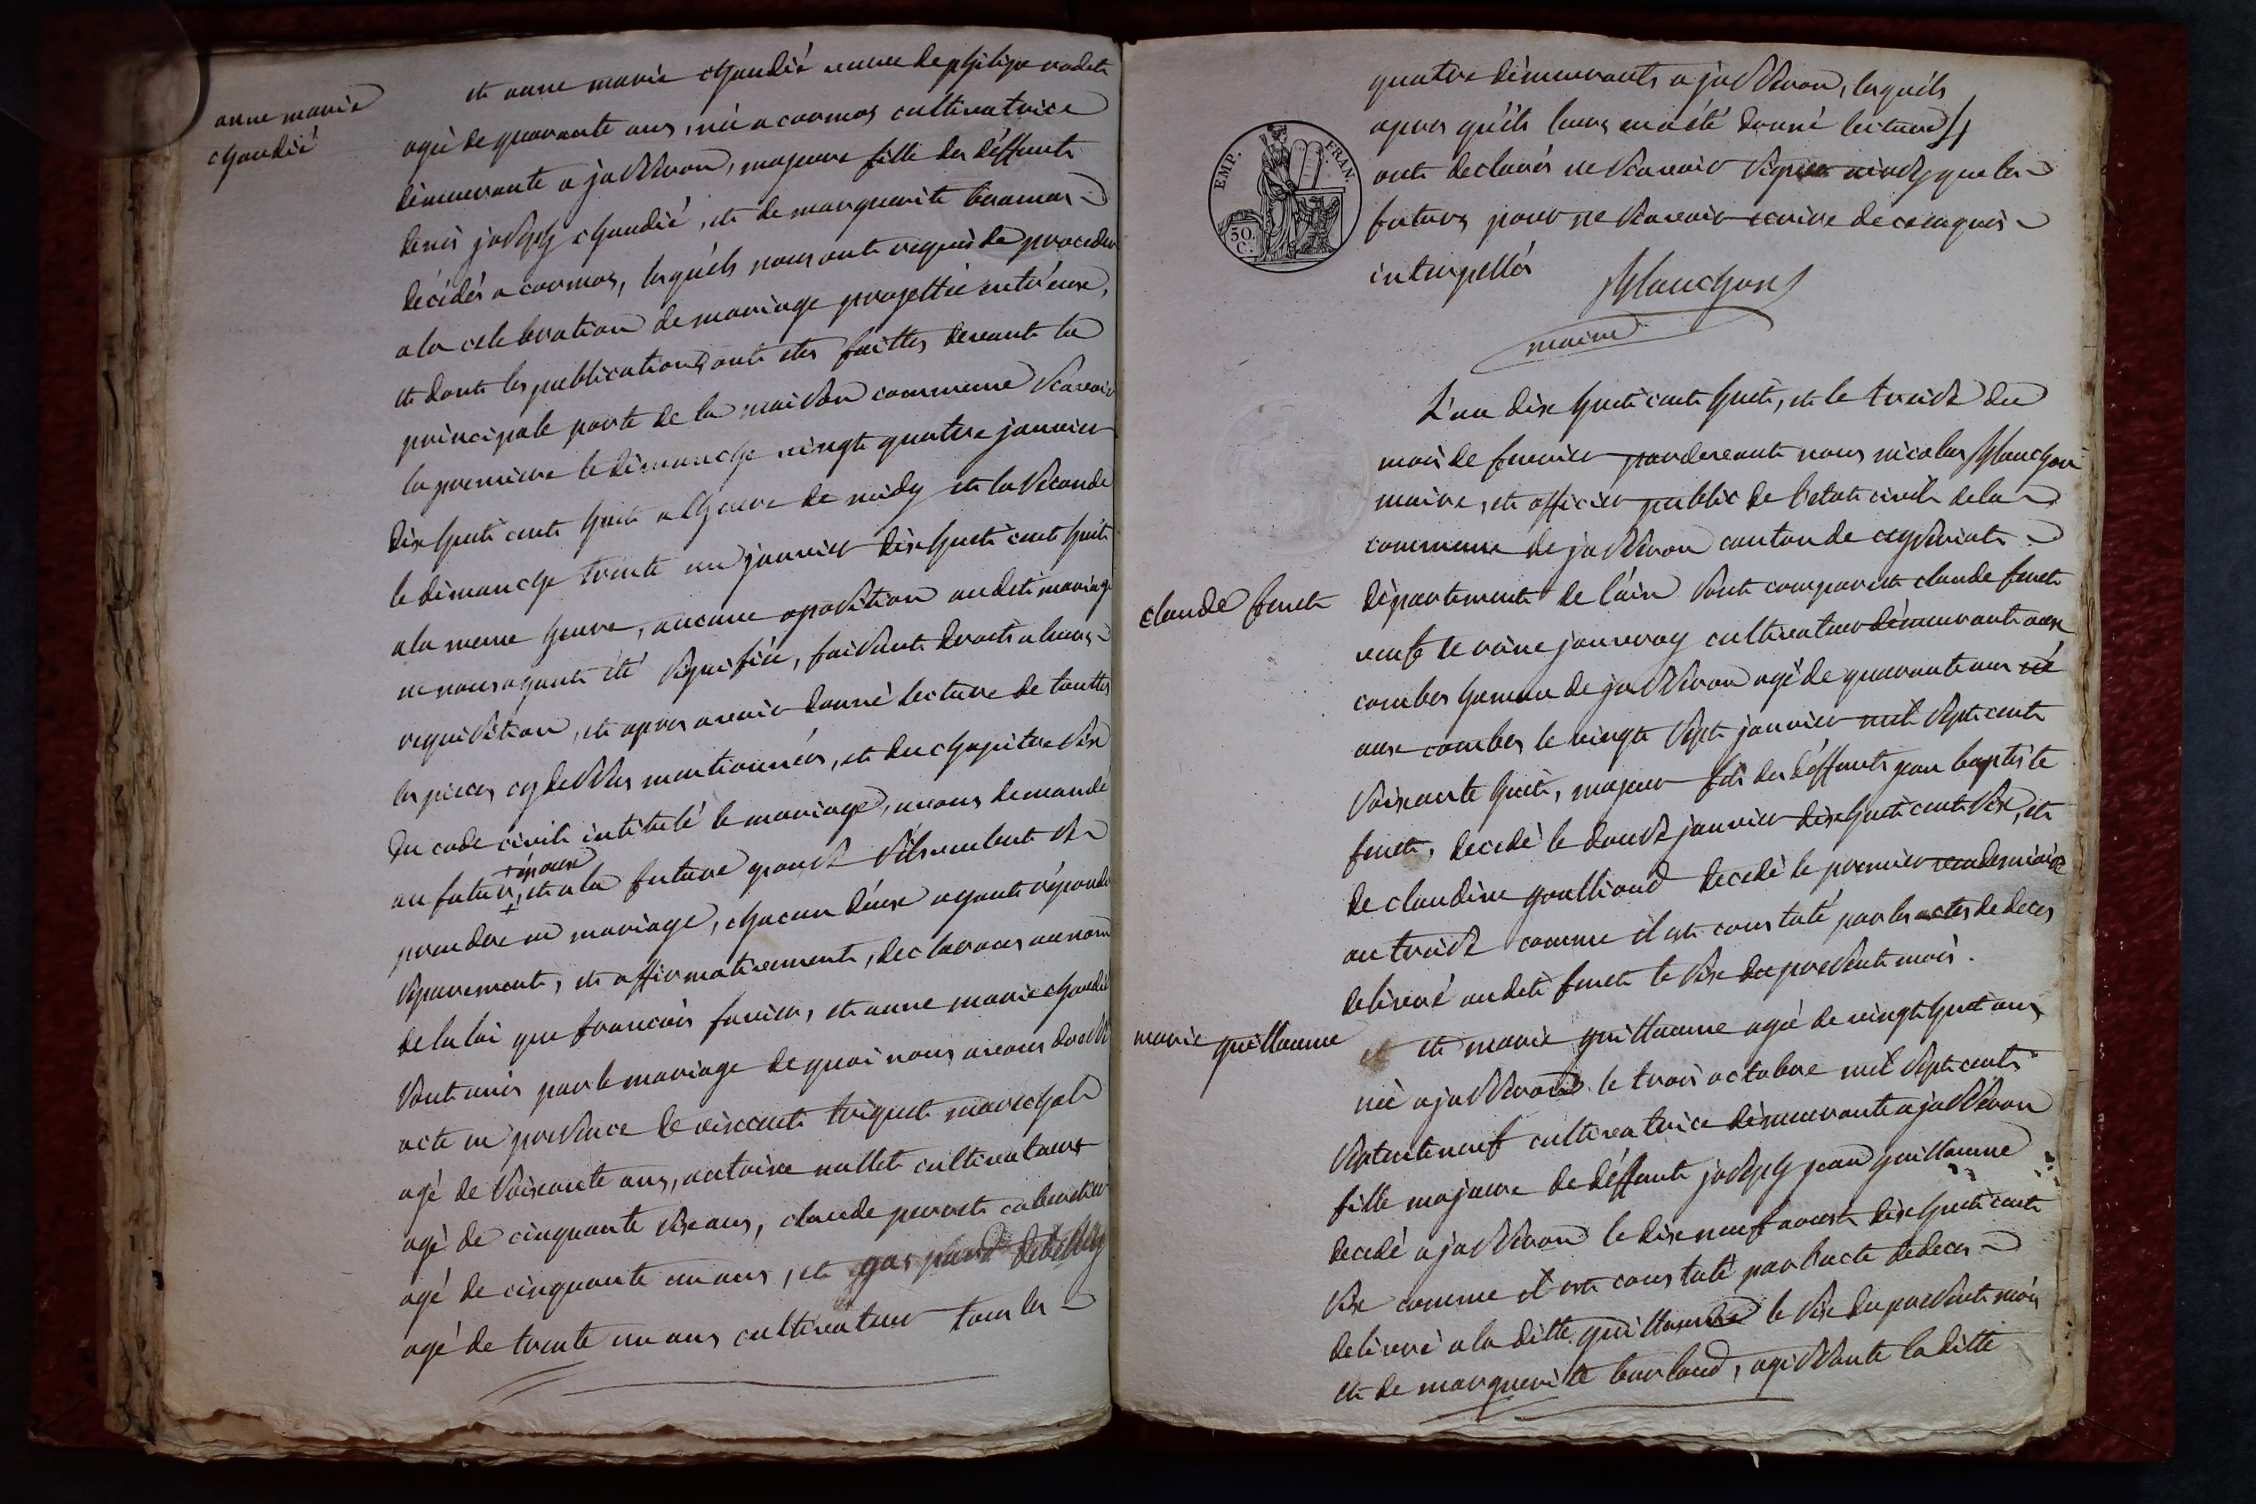 anne marie
chandié
et anne marie chandié veuve de philipe rodet
agée de quarante ans, née a cormos cultivatrice
demeurante a jasseron, majeure fille des deffunts
denis joseph chandié, et de marguerite
décédés a cormos, lesquels nous ont requis de proceder
a la celebration de mariage projettée entr'eux,
et dont les publications ont étés faittes devant la
principale porte de la maison commune scavoir
la premiere le dimanche vingt quatre janvier
dix huit cent huit a lheure de midy et la seconde
le dimanche trente un janvier dix huit cent huit
a la meme heure, aucune oposition audit mariage
ne nous ayant été signifiée, faisant droit a leurs
requisition, et apres avoir donné lecture de touttes
les pieces cy dessus mentionnées, et du chapitre six
du code civil intitulé le mariage, avons demandé
au futur +époux
et a la future épouse s'ils veulent se
prendre en mariage, chacun d'eux ayant répondu
séparement, et affirmativement, declarons au nom
de la loi que francois favier, et anne marie chandié
sont unis par le mariage de quoi nous avons dressé
acte en présence de vincent triquet marechal
agé de soixante ans, antoine nallet cultivateur
agé de cinquante six ans, claude perret cabaretier
agé de cinquante un ans, et gaspard debelley
agé de trente un ans cultivateur tous les
quatre demeurants a jasseron, lesquels
apres qu'il leurs en a été donné lecture
ont declarés ne scavoir signer ainsy que les
futurs pour ne scavoir écrire de ce enquis
interpellés
Blanchon
maire
EMP. FRAN.
50.
C.
L'an dix huit cent huit, et le treize du
mois de fevrier pardevant nous nicolas Blanchon
maire, et officier public de l'etat civil de la
commune de jasseron canton de ceyzeriat
département de l'ain sont comparut claude feuet
claude feuet
veuf de reine jouvray cultivateur demeurant aux
combes hameau de jasseron agé de quarante ans né
aux combes le vingt sept janvier mil sept cent
soixante huit, majeur fils des deffunts jean baptiste
feuet, decedé le douze janvier dix huit cent six, et
de claudine goulliaud decedé le premier vendemiaire
an treize comme il est constaté par les actes de deces
delivré audit feuet le six du présent mois.
marie guillaume
et marie guillaume agée de vingt huit ans
née a jasseron le trois octobre mil sept cent
septante neuf cultivatrice demeurante a jasseron
fille majeure de deffunt joseph jean guillaume
decedé a jasseron le dix neuf aoust dix huit cent
six comme il est constaté par l'acte de deces
delivré a la ditte guillaume le six du présent mois
et de marguerite barland, agissante la ditte